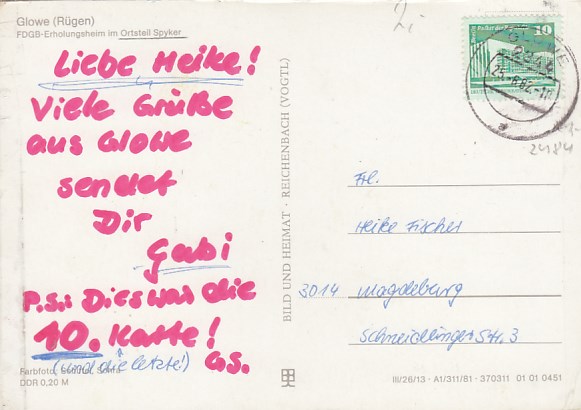 Glowe (Rügen)
FDGB-Erholungsheim im Ortsteil Spyker
Liebe Heike!
Viele Grüße
aus Glowe
sendet
Dir
Gabi
P.S.: Dies war die
10. Karte!
(und die letzte!) GS.
Farbfoto:
DDR 0,20 M
BILD UND HEIMAT · REICHENBACH (VOGTL)
10
GLOWE
25.-6.82.-11
Frl.
Heike Fischer
3014 Magdeburg
Schneidlinger Str. 3
III/26/13 · A1/311/81 · 370311 01 01 0451